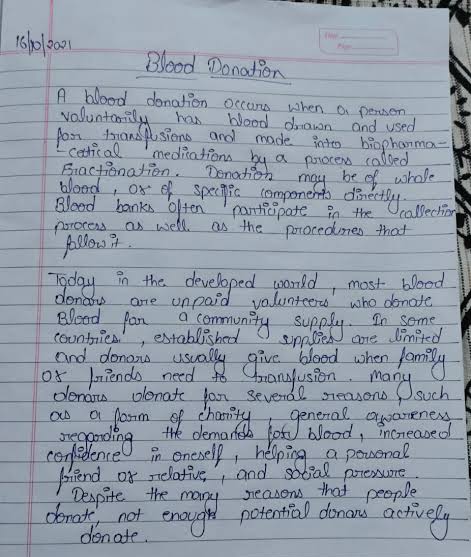 16/10/2021
Date
Page
Blood Donation
A blood donation occurs when a person
voluntarily has blood drawn and used
for transfusions and made into biopharma-
-cetical mediations by a process called
Fractionation. Donation may be of whole
blood, or of specific components directly.
Blood banks often participate in the collection
process as well as the procedures that
follow it.
Today in the developed world, most blood
donars are unpaid volunteers who donate
Blood for a community supply. In some
countries, established supplies are limited
and donars usually give blood when family
or friends need to transfusion. Many
donars donate for several reasons, such
as a form of charity, general awareness
regarding the demands for blood, increased
confidence in oneself, helping a personal
friend or relative, and social pressure.
Despite the many reasons that people
donate, not enough potential donars actively
donate.